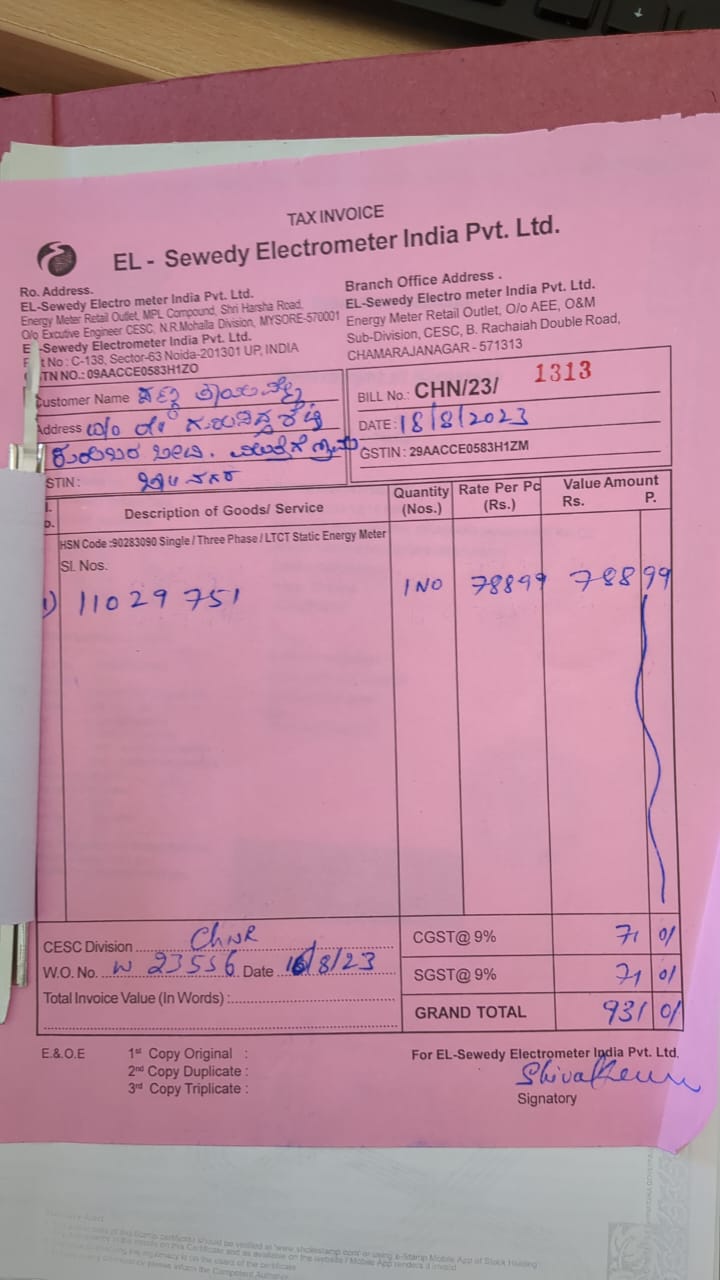 TAX INVOICE
EL - Sewedy Electrometer India Pvt. Ltd.
Ro. Address.
EL-Sewedy Electro meter India Pvt. Ltd.
Energy Meter Retail Outlet, MPL Compound, Shri Harsha Road,
O/o Excutive Engineer CESC, N.R.Mohalla Division, MYSORE-570001
E -Sewedy Electrometer India Pvt. Ltd.
t No : C-138, Sector-63 Noida-201301 UP, INDIA
TN NO.: 09AACCE0583H1ZO
Branch Office Address .
EL-Sewedy Electro meter India Pvt. Ltd.
Energy Meter Retail Outlet, O/o AEE, O&M
Sub-Division, CESC, B. Rachaiah Double Road,
CHAMARAJANAGAR - 571313
Customer Name
Address
STIN :
BILL No.: CHN/23/ 1313
DATE : 18/8/2023
GSTIN : 29AACCE0583H1ZM
Description of Goods/ Service
Quantity (Nos.)
Rate Per Pc (Rs.)
Value Amount
Rs. P.
HSN Code :90283090 Single / Three Phase / LTCT Static Energy Meter
Sl. Nos.
1) 11029751 1 NO 78899 788 99
CESC Division CHNR
W.O. No. W 23556 Date 16/8/23
Total Invoice Value (In Words) :
CGST@ 9% 71 01
SGST@ 9% 71 01
GRAND TOTAL 931 01
E.&O.E
1st Copy Original :
2nd Copy Duplicate :
3rd Copy Triplicate :
For EL-Sewedy Electrometer India Pvt. Ltd.
Signatory